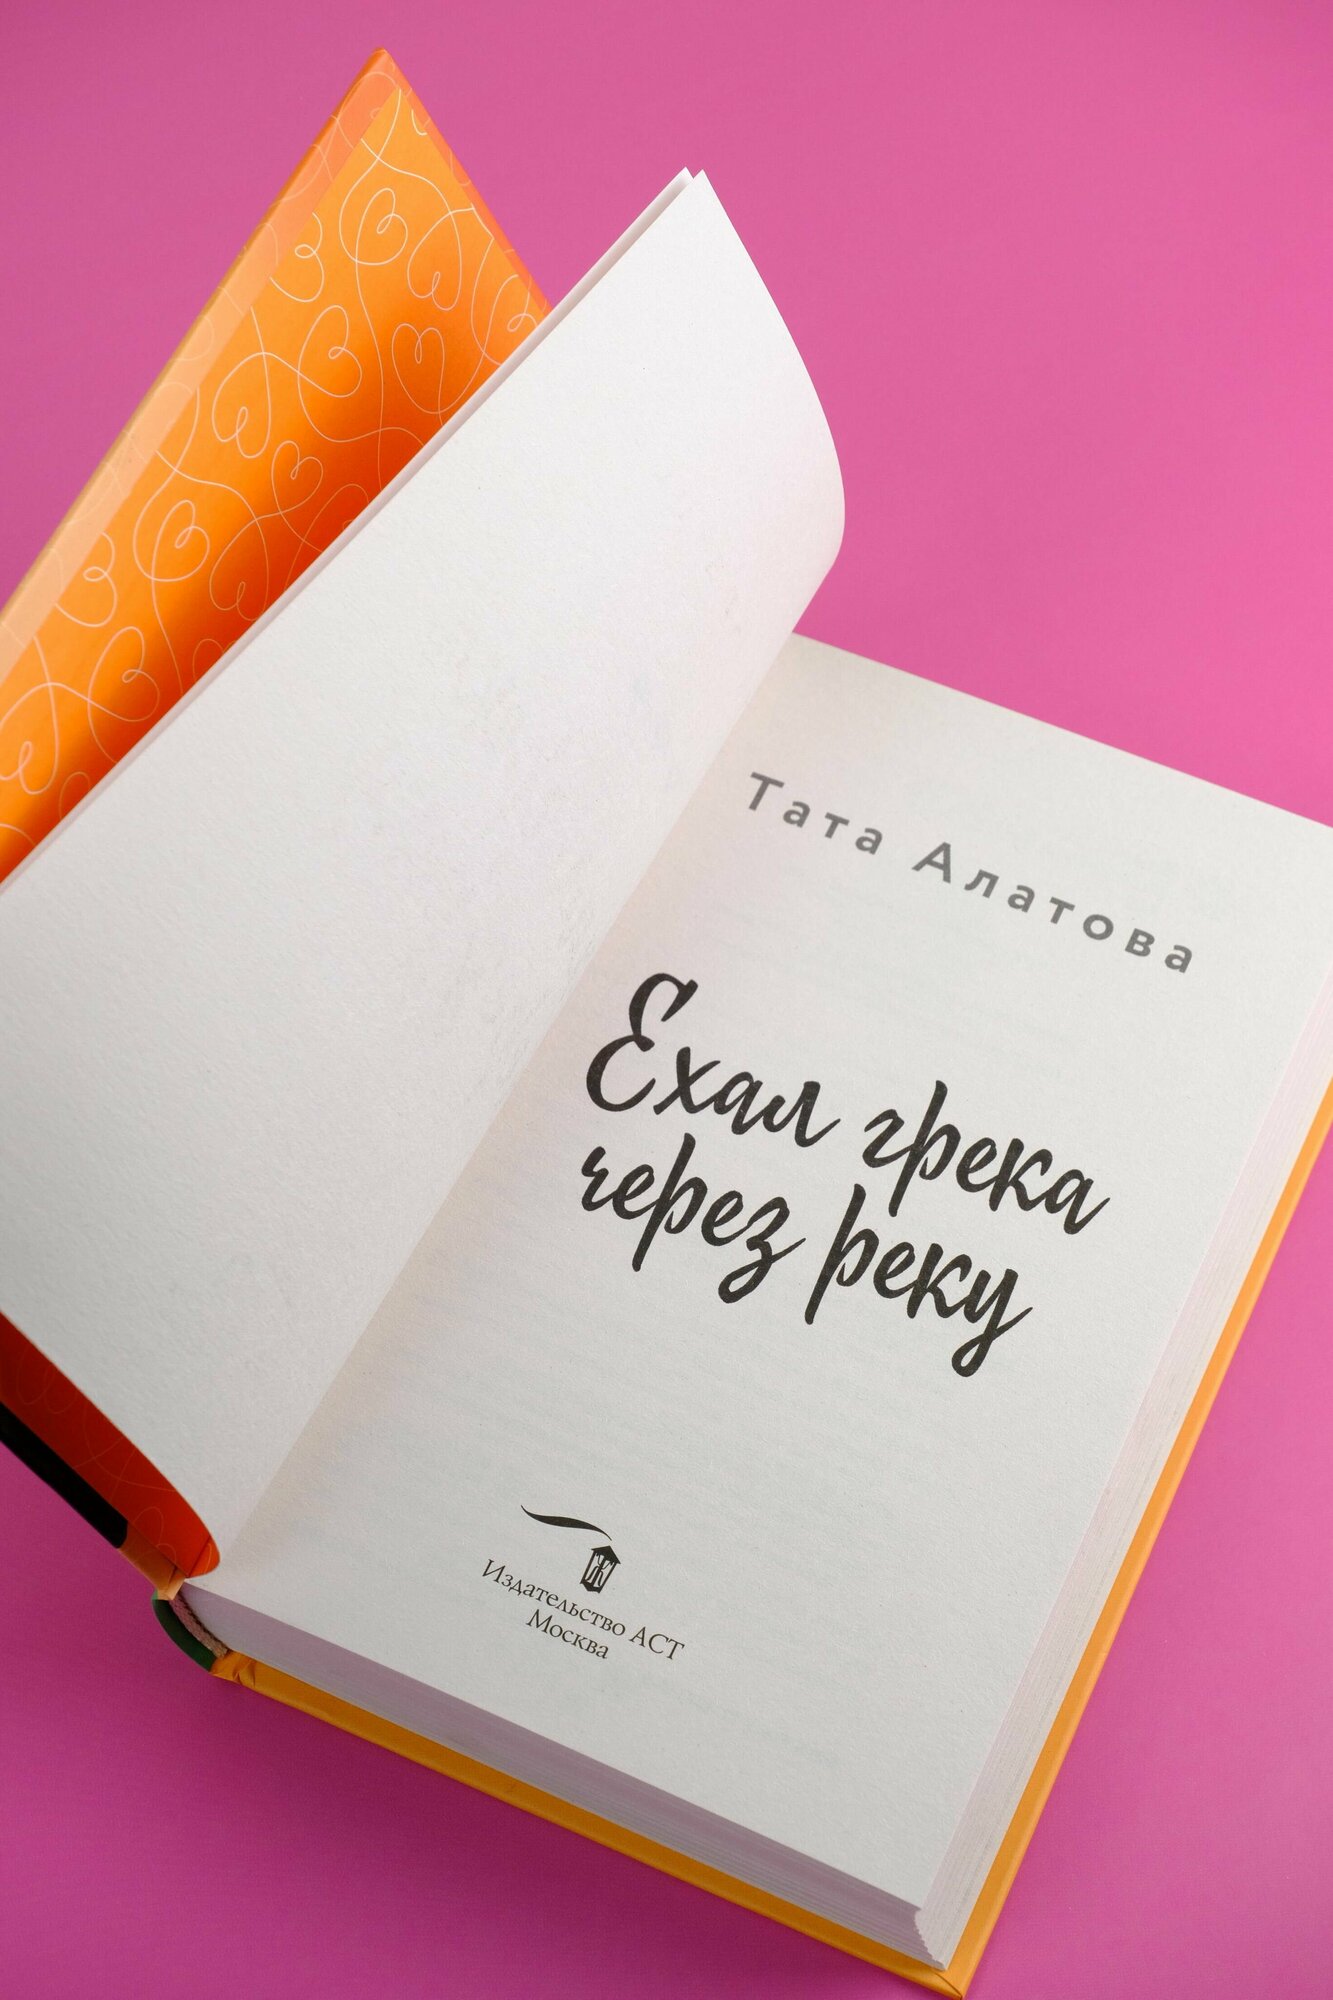 Тата Алатова
Ехал грека
через реку
Ж
Издательство АСТ
Москва